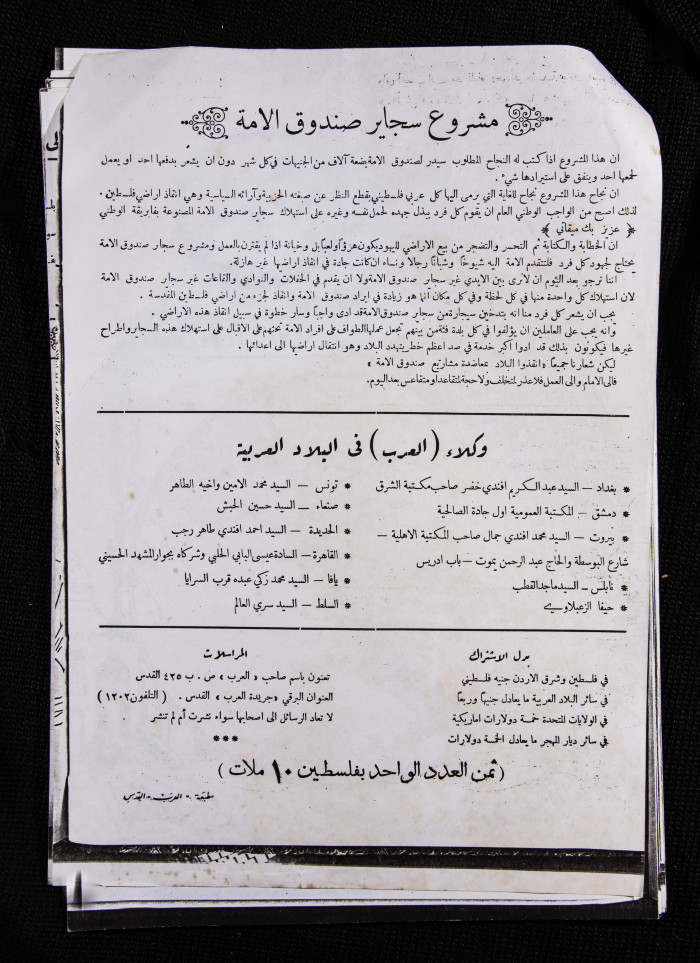 مشروع سجاير صندوق الامة
ان هذا المشروع اذا كتب له النجاح المطلوب سيدر لصندوق الامة بضعة آلاف من الجنيهات في كل شهر دون ان يشعر بدفعها احد او يعمل
لجمعها احد وينفق على استيرادها شيء.
ان نجاح هذا المشروع نجاح للغاية التي يرمى اليها كل عربي فلسطيني بقطع النظر عن صبغته الحزبية وآرائه السياسية وهي انقاذ اراضي فلسطين.
لذلك اصبح من الواجب الوطني العام ان يقوم كل فرد يبذل جهده لحمل نفسه وغيره على استهلاك سجاير صندوق الامة المصنوعة بفابريقة الوطني
﴿ عزيز بك ميقاتي ﴾
ان الخطابة والكتابة ثم التحسر والتضجر من بيع الاراضي لليهود يكون هزؤاً ولعباً بل وخيانة اذا لم يقترن بالعمل ومشروع سجاير صندوق الامة
يحتاج لجهود كل فرد فلتتقدم الامة اليه شيوخاً وشباناً رجالا ونساء ان كانت جادة في انقاذ اراضيها غير هازلة.
اننا نرجو بعد اليوم ان لا نرى بين الايدي غير سجاير صندوق الامة ولا ان يقدم في الحفلات والنوادي والقاعات غير سجاير صندوق الامة
لان استهلاك كل واحدة منها في كل لحظة وفي كل مكان انما هو زيادة في ايراد صندوق الامة وانقاذ لجزء من اراضي فلسطين المقدسة.
يجب ان يشعر كل فرد منا انه بتدخين سيجارة من سجاير صندوق الامة قد ادى واجبا وسار خطوة في سبيل انقاذ هذه الاراضي.
وانه يجب على العاملين ان يؤلفوا في كل بلدة فئة من بينهم تجعل عملها الطواف على افراد الامة تحثهم على الاقبال على استهلاك هذه السجاير واطراح
غيرها فيكونون بذلك قد ادوا اكبر خدمة في صد اعظم خطر يتهدد البلاد وهو انتقال اراضيها الى اعدائها.
ليكن شعارنا جميعاً «انقذوا البلاد بمعاضدة مشاريع صندوق الامة»
فالى الامام والى العمل فلا عذر لمتخلف ولا حجة لمتقاعد او متقاعس بعد اليوم.
وكلاء (العرب) فى البلاد العربية
* بغداد — السيد عبد الكريم افندي خضر صاحب مكتبة الشرق
* دمشق — المكتبة العمومية اول جادة الصالحية
* بيروت — السيد محمد افندي جمال صاحب المكتبة الاهلية —
شارع البوسطة والحاج عبد الرحمن يموت — باب ادريس
* نابلس — السيد ماجد القطب
* حيفا الزعبلاويـــي
* تونس — السيد محمد الامين واخيه الطاهر
* صنعاء — السيد حسين الحبش
* الحديدة — السيد احمد افندي طاهر رجب
* القاهرة — السادة عيسى البابي الحلبي وشركاه بجوار المشهد الحسيني
* يافا — السيد محمد زكي عبده قرب السرايا
* السلط — السيد سري العالم
بدل الاشتراك
في فلسطين وشرق الاردن جنيه فلسطيني
في سائر البلاد العربية ما يعادل جنيهاً وربعاً
في الولايات المتحدة خمسة دولارات اماريكية
في سائر ديار المهجر ما يعادل الخمسة دولارات
المراسلات
تعنون باسم صاحب «العرب» ص. ب ٤٢٥ القدس
العنوان البرقي «جريدة العرب» القدس. (التلفون ١٢٠٢)
لا تعاد الرسائل الى اصحابها سواء نشرت أم لم تنشر
***
(ثمن العدد الواحد بفلسطين ١٠ ملات)
مطبعة «العرب» القدس